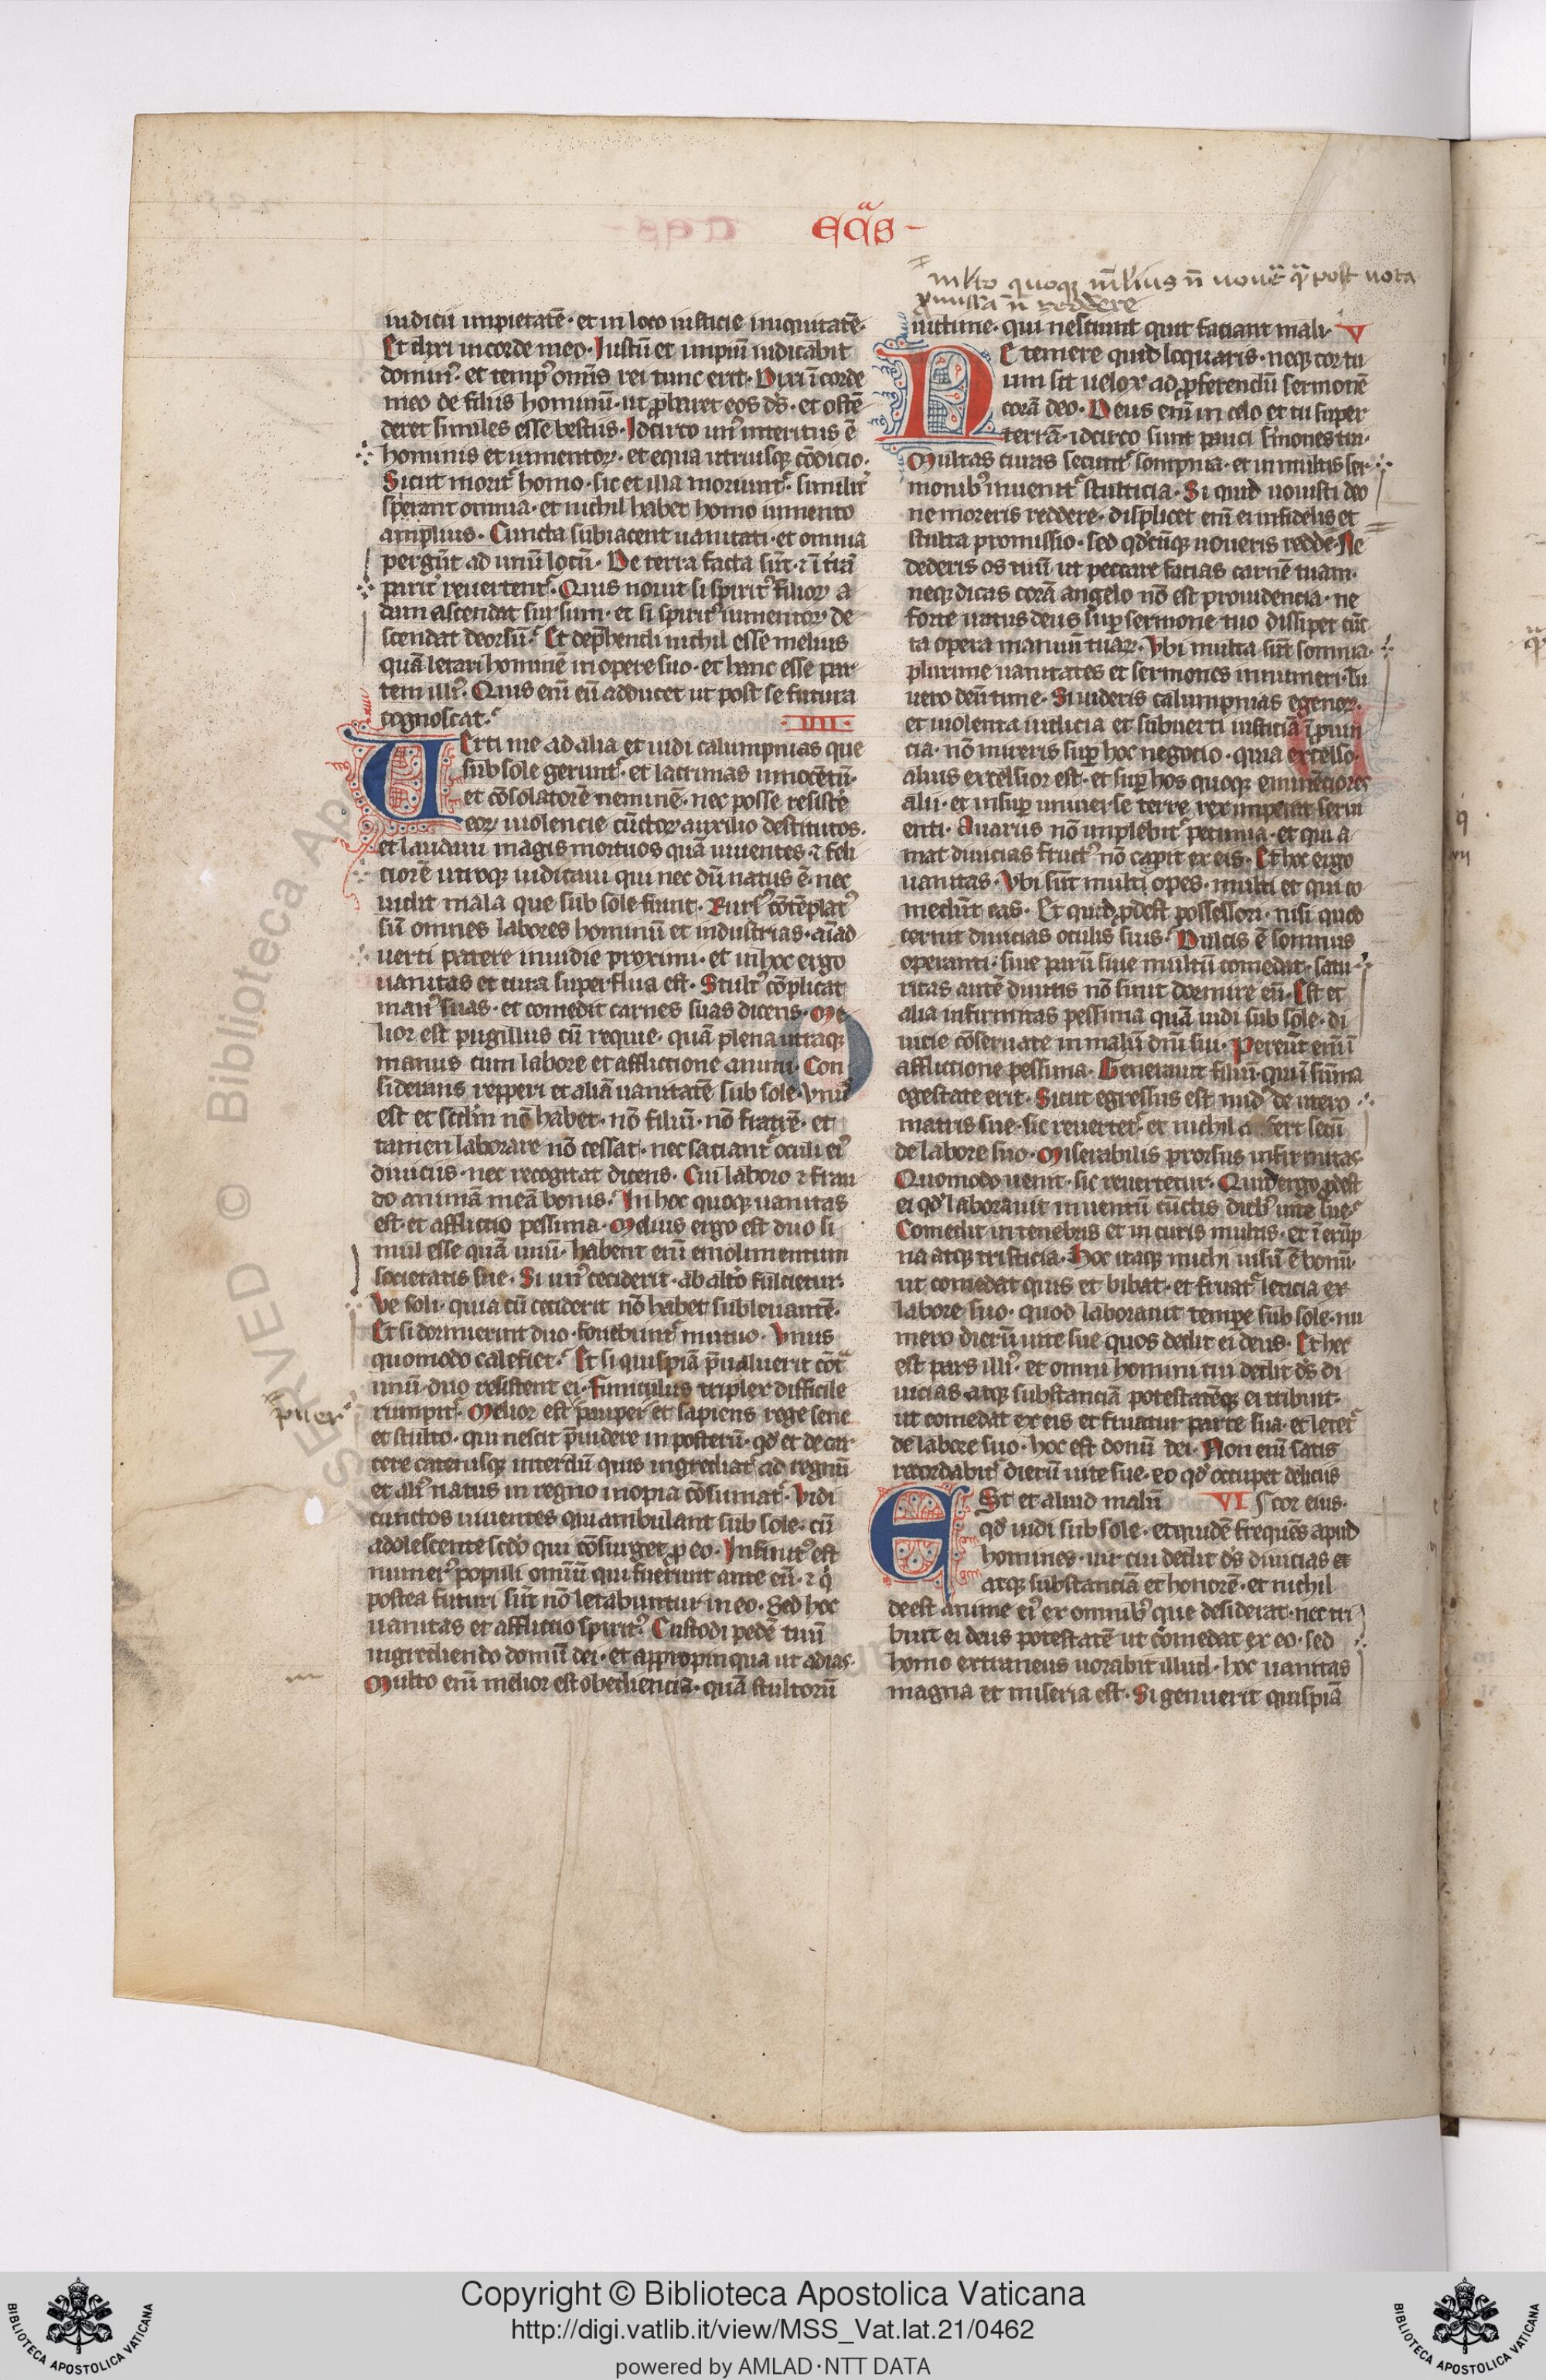 Eccᵃs
mlto quoque mlius n̄ vouēᵉ qᵃ post uota
ꝓmissa n̄ reddere
iudiciū impietatē· et in loco iusticie iniquitatē·
Et dixi in corde meo· Iustū et impiū iudicabit
dominꝰ· et tempꝰ omīs rei tunc erit· Dixi ī corde
meo de filiis hominū· ut ꝓbaret eos ds̄· et ostē
deret similes esse bestiis· Idcirco unꝰ interitus ē
hominis et iumentoꝝ· et equa utriusqꝫ cōdicio·
Sicut morit᷑ homo· sic et illa moriunt᷑· similit᷑
spirant omnia· et nichil habet homo iumento
amplius· Cuncta subiacent uanitati· et omnia
pergūt ad unū locū· De terra facta sūt· ⁊ ī t᷑rā
parit᷑ reuertent᷑· Quis nouit si spiritꝰ filioꝝ a
dam ascendat sursum· et si spiritꝰ iumentoꝝ de
scendat deorsū· Et dep̄hendi nichil esse melius
quā letari hominē in opere suo· et hanc esse par
tem illiꝰ· Quis enī eū adducet ut post se futura
cognoscat·
IIII
Uerti me ad alia et uidi calumpnias que
sub sole gerunt᷑· et lacrimas innocētū·
et cōsolatorē neminē· nec posse resistē
eoꝝ uiolencie cūctoꝝ auxilio destitutos·
et laudaui magis mortuos quā uiuentes· ⁊ feli
ciorē utroqꝫ iudicaui qui nec dū natus ē· nec
uidit mala que sub sole fiunt· Rursꝰ cōtēplatꝰ
sū omnes labores hominū et industrias· aīad
uerti patere inuidie proximi· et in hoc ergo
uanitas et cura superflua est· Stultꝰ cōplicat
manꝰ suas· et comedit carnes suas dicens· Me
lior est pugillus cū requie· quā plena utraqꝫ
manus cum labore et afflictione animi· Con
siderans repperi et aliā uanitatē sub sole· Vnꝰ
est et scdm̄ nō habet· nō filiū· nō fratrē· et
tamen laborare nō cessat· nec saciant᷑ oculi eiꝰ
diuiciis· nec recogitat dicens· Cui laboro ⁊ frau
do animā meā bonis· In hoc quoqꝫ uanitas
est· et afflictio pessima· Melius ergo est duo si
mul esse quā unū· habent enī emolimentum
societatis sue· Si unꝰ ceciderit· ab alt᷑o fulcietur·
Ve soli· quia cū ceciderit nō habet subleuantē·
Et si dormierint duo· fouebunt᷑ mutuo· Vnus
quomodo calefiet· Et si quispiā p̄ualuerit cōtᵃ
unū· duo resistent ei· Funiculus triplex difficile
puer
rumpit᷑· Melior est pauper et sapiens rege sene
et stulto· qui nescit p̄uidere in posterū· qd̄ et de car
cere catenisqꝫ interdū quis ingrediat᷑ ad regnū
et aliꝰ natus in regno inopia cōsumat᷑· Vidi
cunctos uiuentes qui ambulant sub sole· cū
adolescente scdo qui cōsurget ꝓ eo· Infinitꝰ est
numerꝰ populi omīū qui fuerunt ante eū· ⁊ qͥ
postea futuri sūt nō letabuntur in eo· Sed hoc
uanitas et afflictio spiritꝰ· Custodi pedē tuū
ingrediendo domū dei· et appropinqua ut adias·
Multo enī melior est obediencia· quā stultorū
uictime· qui nesciunt quit faciant mali· V
Ne temere quid loquaris· neqꝫ cor tu
um sit uelox ad ꝓferendū sermonē
corā deo· Deus enī in celo et tu super
terrā· idcirco sunt pauci s᷑mones tui·
Multas curas secunt᷑ sompnia· et in multis ser
monibꝰ inuenit᷑ stulticia· Si quid uouisti deo
ne moreris reddere· displicet enī ei infidelis et
stulta promissio· sed qd̄cūqꝫ uoueris redde· Ne
dederis os tuū ut peccare facias carnē tuam·
neqꝫ dicas corā angelo nō est prouidencia· ne
forte iratus deus suꝑ sermone tuo dissipet cūc
ta opera manuū tuaꝝ· Vbi multa sūt somnia·
plurime uanitates et sermones innumeri· Tu
uero deū time· Si uideris calumpnias egenoꝝ·
et uiolenta iudicia et subuerti iusticiā ī ꝓuin
cia· nō mireris suꝑ hoc negocio· quia excelso
alius excelsior est· et suꝑ hos quoqꝫ eminēciores
alii· et insuꝑ uniuerse terre rex imperat serui
enti· Auarus nō implebit᷑ pecunia· et qui a
mat diuicias fructꝰ nō capit ex eis· Et hoc ergo
uanitas· Vbi sūt multi opes· multi et qui co
medūt eas· Et quid ꝓdest possessori· nisi quod
cernit diuicias oculis suis· Dulcis ē somnus
operanti· siue parū siue multū comedat· satu
ritas autē diuitis nō sinit dormire eū· Est et
alia infirmitas pessima quā uidi sub sole· di
uicie cōseruate in malū dn̄i sui· Pereūt enī ī
afflictione pessima· Generauit filiū· qui ī sūma
egestate erit· Sicut egressus est nudꝰ de utero
matris sue· sic reuertet᷑· et nichil aufert secū
de labore suo· Miserabilis prorsus infirmitas·
Quomodo uenit· sic reuertetur· Quid ergo ꝓdest
ei qd̄ laborauit in uentū· cūctis diebꝰ uite sue·
Comedit in tenebris et in curis multis· et ī erūp
na atqꝫ tristicia· Hoc itaqꝫ michi uisū ē bonū·
ut comedat quis et bibat· et fruat᷑ leticia ex
labore suo· quod laborauit tempe sub sole· nu
mero dierū uite sue quos dedit ei deus· Et hec
est pars illiꝰ· et omni homini cui dedit ds̄ di
uicias atqꝫ substanciā potestatēqꝫ ei tribuit·
ut comedat ex eis et fruatur parte sua· et letet᷑
de labore suo· hoc est donū dei· Non enī satis
recordabit᷑ dierū uite sue· eo qd̄ occupet deliciis
Est et aliud malū VI cor eius·
qd̄ uidi sub sole· et quidē frequēs apud
homines· uir cui dedit ds̄ diuicias et
atqꝫ substanciā et honorē· et nichil
deest anime eiꝰ ex omnibꝰ que desiderat· nec tri
buit ei deus potestatē ut comedat ex eo· sed
homo extraneus uorabit illud· hoc uanitas
magna et miseria est· Si genuerit quispiā
© Biblioteca Ap
Copyright © Biblioteca Apostolica Vaticana
http://digi.vatlib.it/view/MSS_Vat.lat.21/0462
powered by AMLAD·NTT DATA
BIBLIOTECA APOSTOLICA VATICANA
BIBLIOTECA APOSTOLICA VATICANA